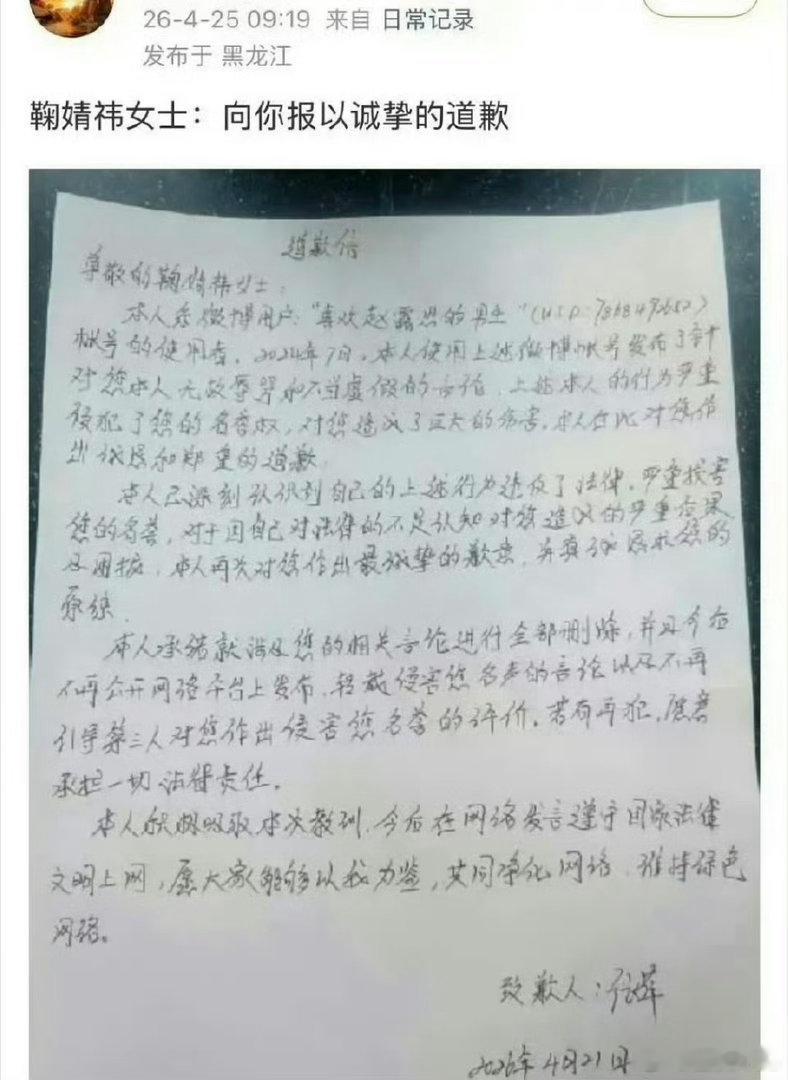 26-4-25 09:19 来自 日常记录
发布于 黑龙江
鞠婧祎女士：向你报以诚挚的道歉
道歉信
尊敬的鞠婧祎女士：
本人系微博用户："喜欢赵露思的男生"(UID:
帐号的使用者，2024年7月，本人使用上述微博帐号发布了针
对您本人无故辱骂和不当虚假的言论，上述本人的行为严重
侵犯了您的名誉权，对您造成了巨大的伤害，本人在此对您作
出诚恳和郑重的道歉
本人已深刻认识到自己的上述行为违反了法律，严重损害
您的名誉，对于因自己对法律的不足认知对您造成的严重后果
及困扰，本人再次对您作出最诚挚的歉意，并真诚恳求您的
原谅.
本人承诺就涉及您的相关言论进行全部删除，并且今后
不再公开网络平台上发布、转载侵害您名声的言论以及不再
引导第三人对您作出侵害您名誉的评价。若有再犯，愿意
承担一切法律责任。
本人积极吸取本次教训，今后在网络发言遵守国家法律
文明上网，愿大家能够以我为鉴，共同净化网络，维持绿色
网络。
致歉人：
2026年4月21日